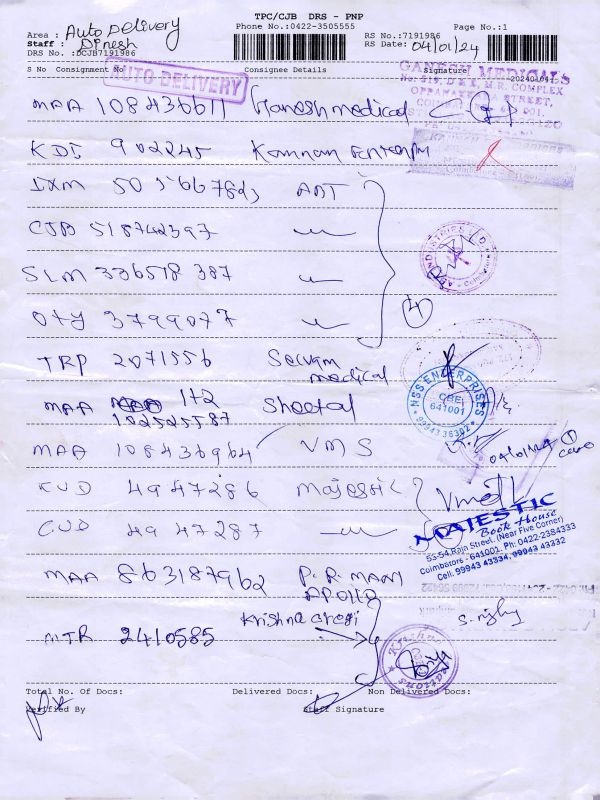 TPC/CJB DRS - PNP
Phone No.:0422-3505555
Page No.:1
Area : Auto Delivery
Staff : Dinesh
DRS No.:DCJB7191986
RS No.:7191986
RS Date: 04/01/24
S No Consignment No Consignee Details Signature 20240104
AUTO DELIVERY
GANESH MEDICALS
MAA 108436611 Ganesh medical
KDI 902245 Kannan
IXM ADT
CJB 518742397 -"-
SLM 336518387 -"-
OTY 3799077 -"-
4
TRP 2071556 Selvam
medical
NSS ENTERPRISES
CBE
641001
99943 36302
MAA 112 Sheetal
182525587
MAA 108436964 VMS
04/01/24
KUD 4947286 Majestic
CUD 4947287 -"-
MAJESTIC
Book House
53-54, Raja Street, (Near Five Corner)
Coimbatore - 641001. Ph: 0422-2384333
Cell: 99943 43334, 99943 43332
MAA 863187962 P.R. MANI
APOLLO
MTR 2410585 Krishna
Total No. Of Docs: Delivered Docs: Non Delivered Docs:
Verified By Staff Signature